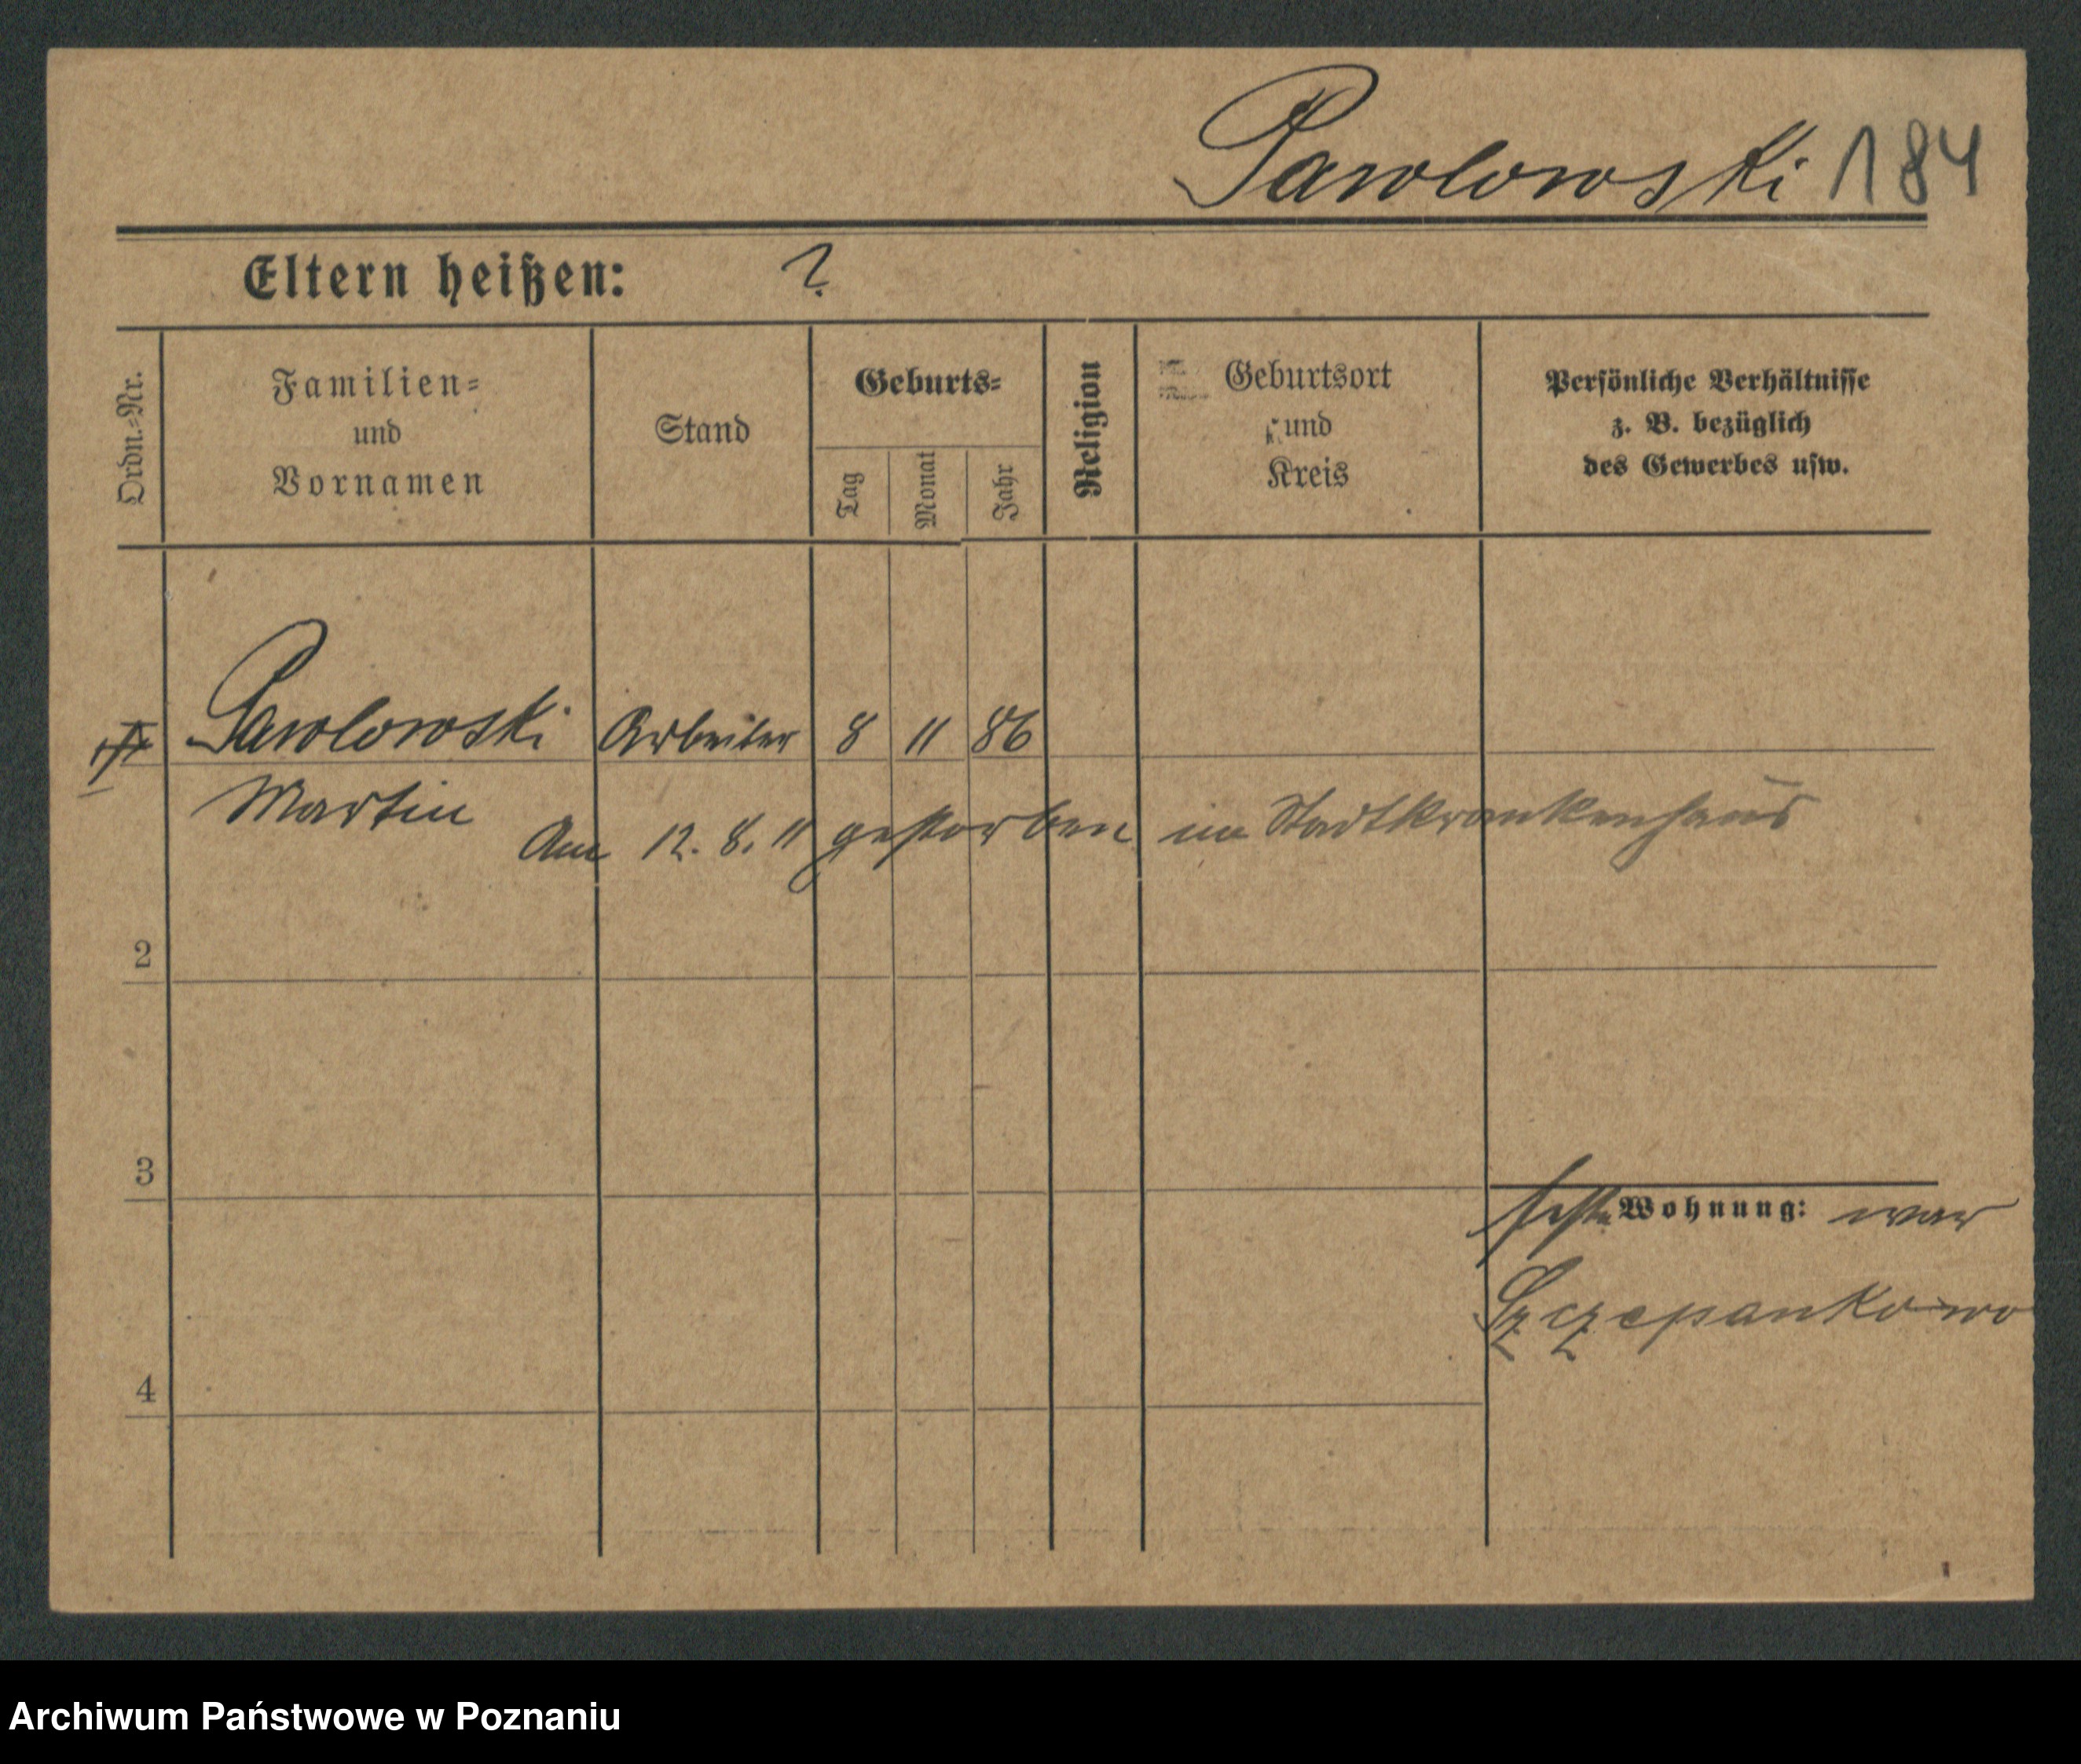 Pawlowski 184
Eltern heißen: ?
Ordn.-Nr.
Familien-
und
Vornamen
Stand
Geburts-
Tag
Monat
Jahr
Religion
Geburtsort
und
Kreis
Persönliche Verhältnisse
z. B. bezüglich
des Gewerbes usw.
Pawlowski Arbeiter 8 11 86
Martin
Am 12. 8. 11 gestorben im Stadtkrankenhaus
2
3
feste Wohnung: war
Szczepankowo
4
Archiwum Państwowe w Poznaniu